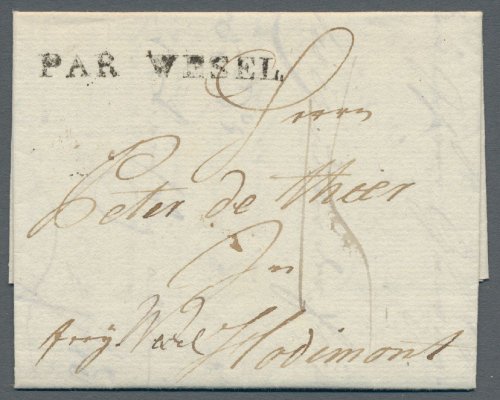 PAR WESEL
Herrn
Peter de Theer
In
frey Wesel Hodimont